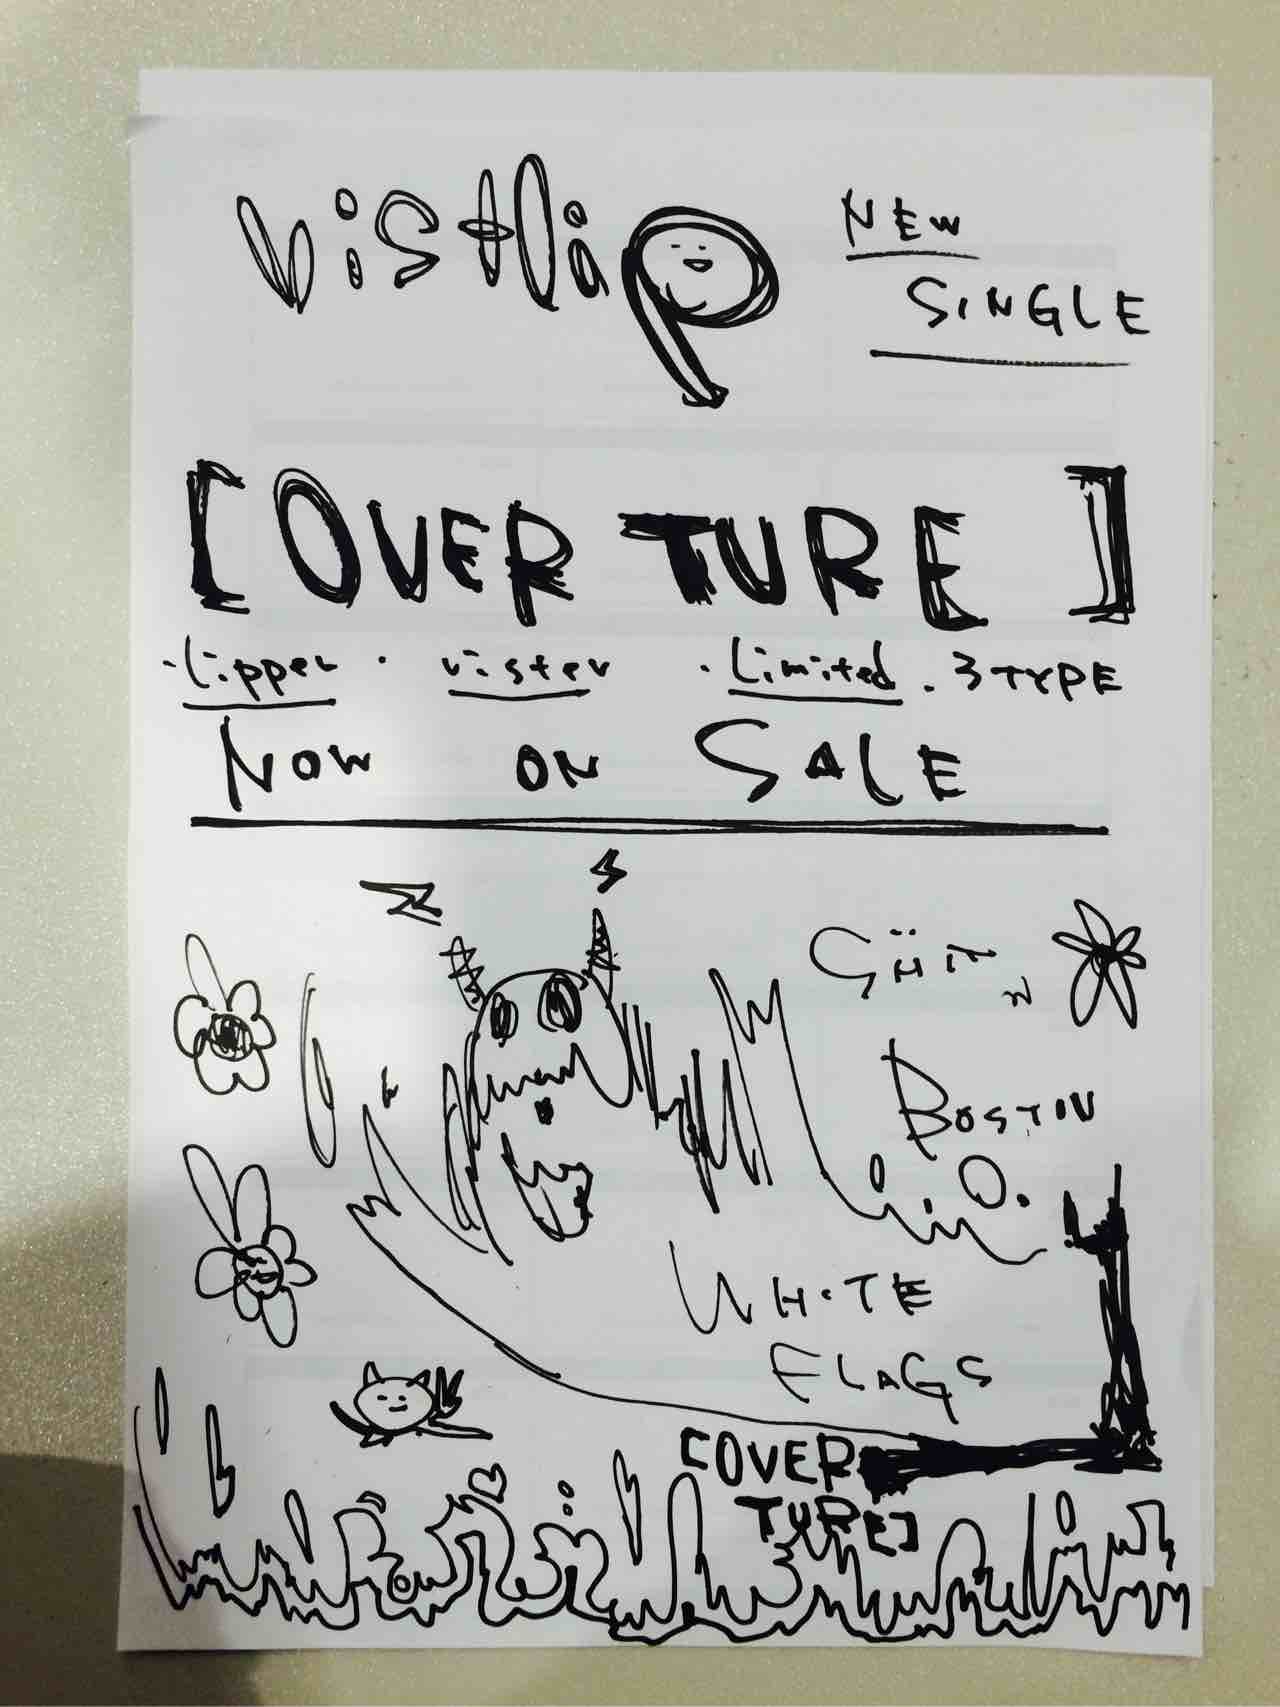 vistlip
NEW
SINGLE
[OVERTURE]
・lipper ・vister ・Limited . 3TYPE
NOW ON SALE
BOSTON
WHITE
FLAGS
[OVER
TURE]